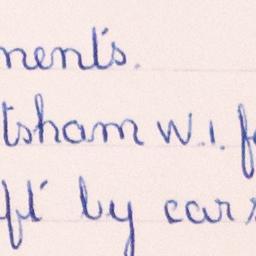 ments.
tsham W.I. f
ft by cars